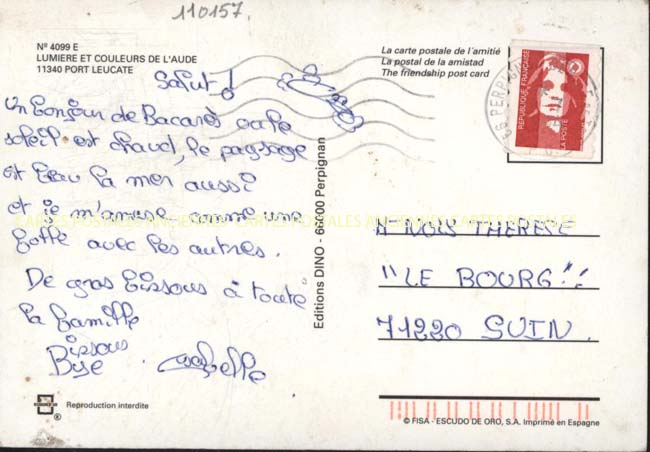 110157.
Nº 4099 E
LUMIERE ET COULEURS DE L'AUDE
11340 PORT LEUCATE
La carte postale de l'amitié
La postal de la amistad
The friendship post card
REPUBLIQUE FRANÇAISE
LA POSTE
Salut!
Un bonjour de Bacarès où le
soleil est chaud, le paysage
est beau la mer aussi
et je m'amuse comme une
folle avec les autres.
De gros bissous à toute
la famille
Bissous
Bise
Editions DINO - 66000 Perpignan
THERESE
"LE BOURG"
71220 SUIN.
Reproduction interdite
®
© FISA - ESCUDO DE ORO, S.A. Imprimé en Espagne